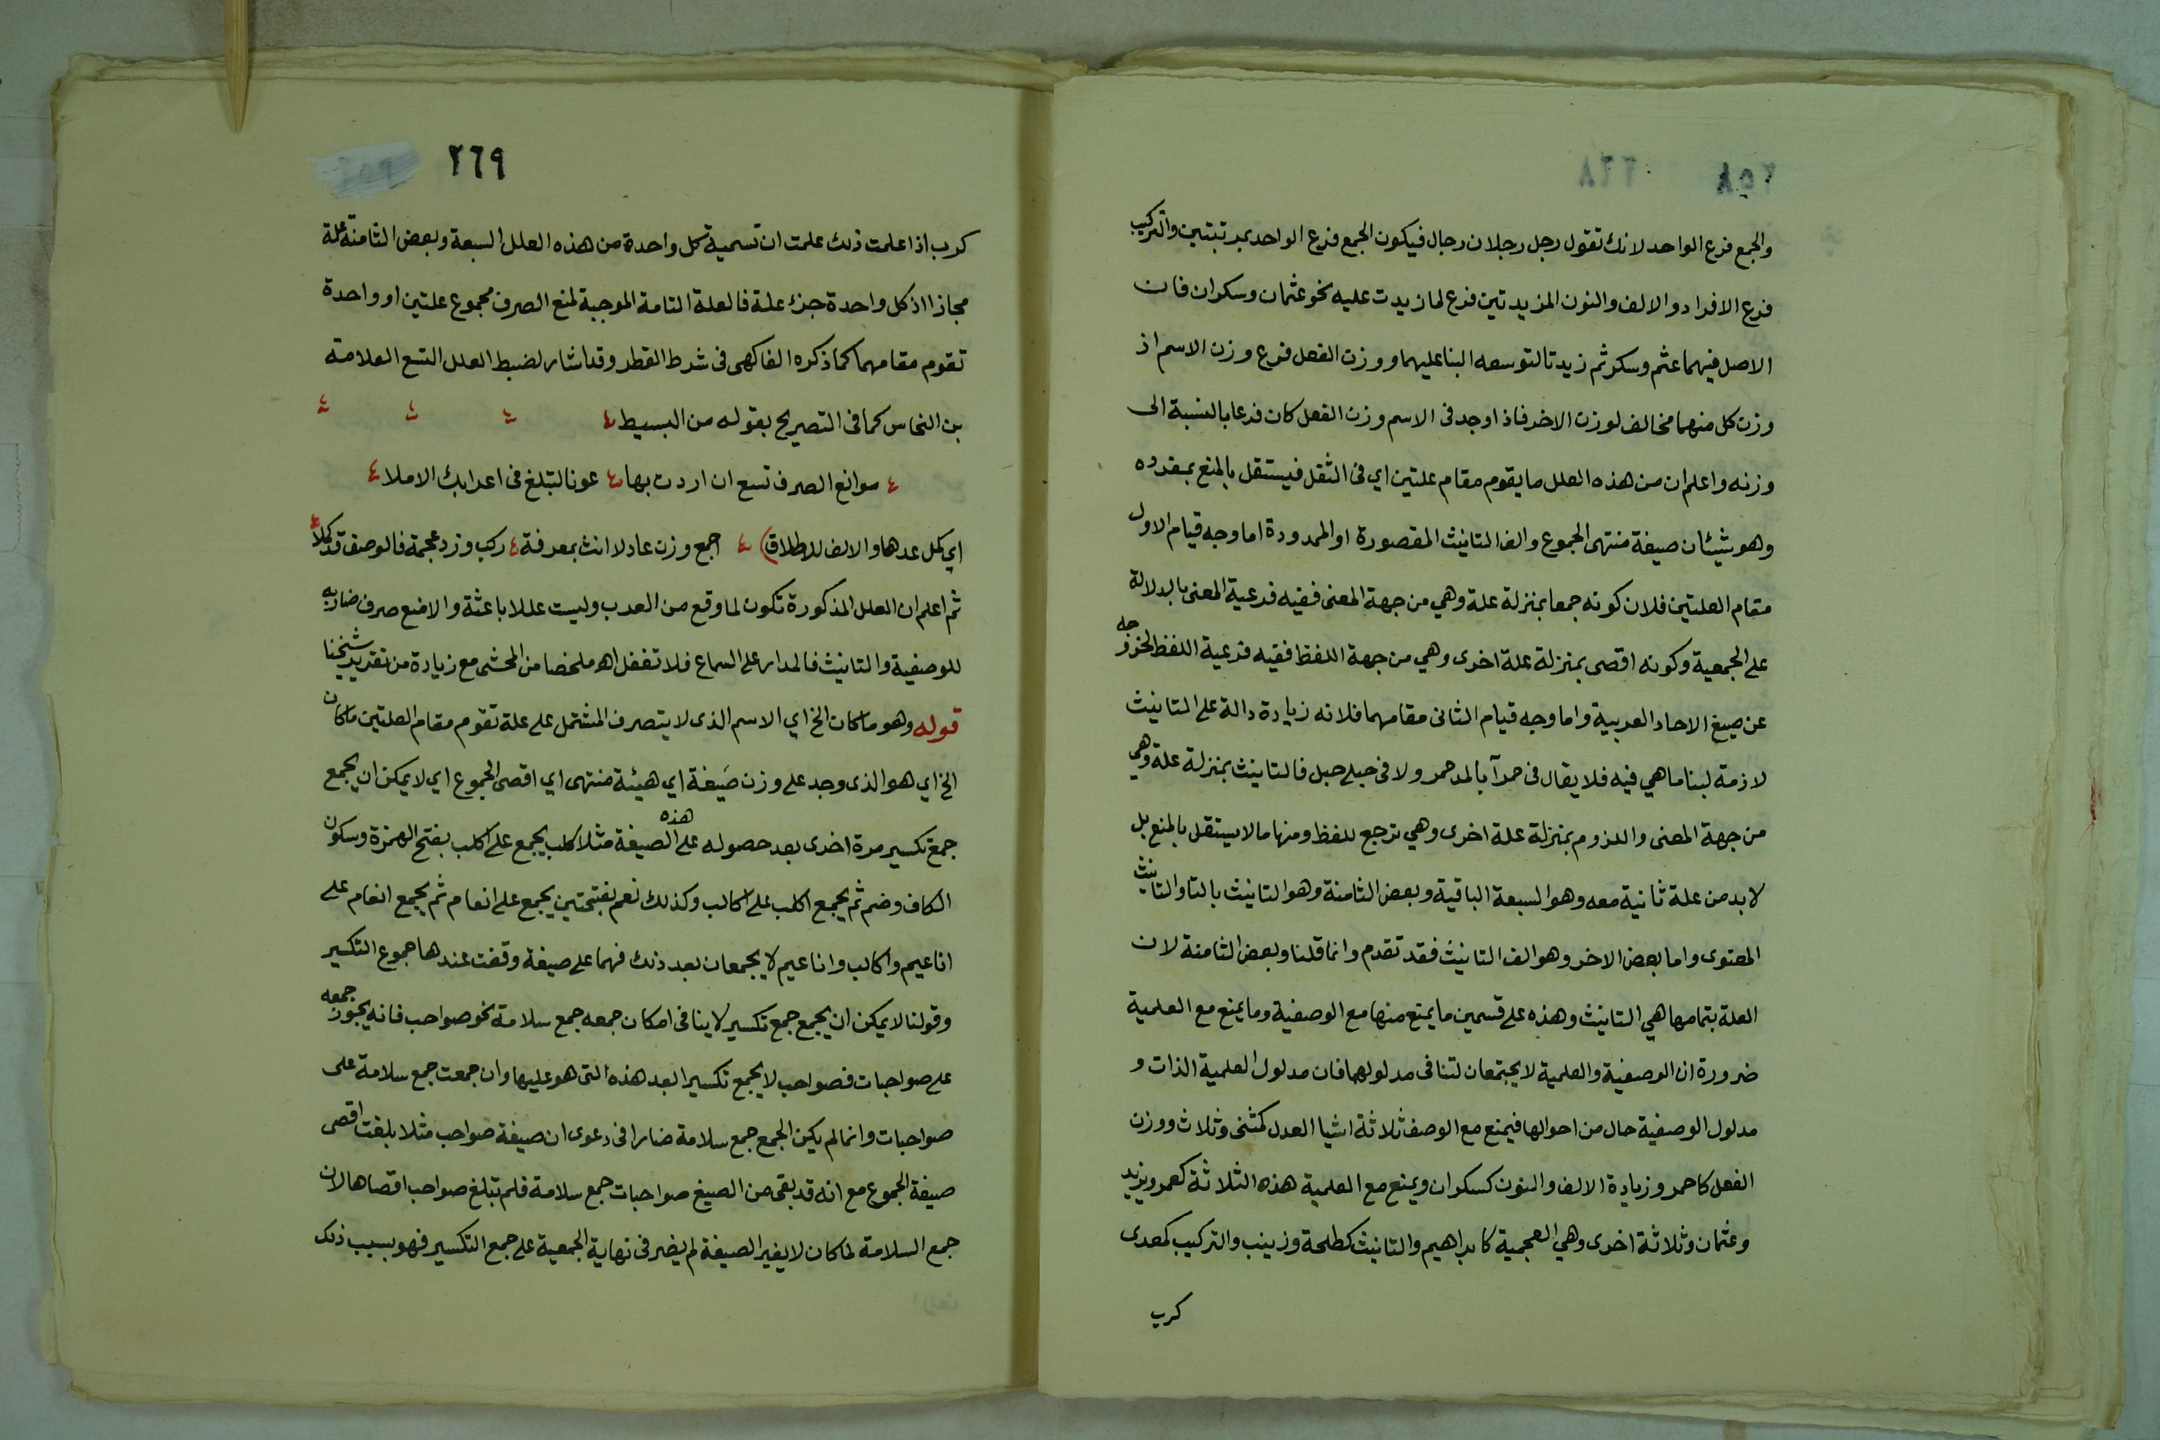 ٢٥٨
والجمع فرع الواحد لانك تقول رجل رجلان رجال فيكون الجمع فرع الواحد بمرتبتين والتركيب
فرع الافراد والالف والنون المزيدتين فرع لما زيدت عليه نحو عثمان وسكران فان
الاصل فيهما عثم وسكر ثم زيدتا لتوسعه البنا عليهما ووزن الفعل فرع وزن الاسم اذ
وزن كل منهما مخالف لوزن الاخر فاذا وجد فى الاسم وزن الفعل كان فرعا بالنسبة الى
وزنه واعلم ان من هذه العلل ما يقوم مقام علتين اي فى الثقل فيستقل بالمنع بمفرده
وهو شيئان صيغة منتهى الجموع والف التانيث المقصورة او الممدودة اما وجه قيام الاول
مقام العلتين فلان كونه جمعا بمنزلة علة وهي من جهة المعنى ففيه فرعية المعنى بالدلالة
على الجمعية وكونه اقصى بمنزلة علة اخرى وهي من جهة اللفظ ففيه فرعية اللفظ لخروجه
عن صيغ الاحاد العربية واما وجه قيام الثانى مقامهما فلانه زيادة دالة على التانيث
لازمة لبنا ما هي فيه فلا يقال فى حمرآ بالمد حمر ولا فى حبلى حبل فالتانيث بمنزلة علة وهي
من جهة المعنى واللزوم بمنزلة علة اخرى وهي ترجع للفظ ومنها ما لا يستقل بالمنع بل
لا بد من علة ثانية معه وهو السبعة الباقية وبعض الثامنة وهو التانيث بالتا والتانيث
المعنوى واما بعض الاخر وهو الف التانيث فقد تقدم وانما قلنا وبعض الثامنة لان
العلة بتمامها هي التانيث وهذه على قسمين ما يمتع منها مع الوصفية وما يمنع مع العلمية
ضرورة ان الوصفية والعلمية لا يجتمعان لتنافى مدلولهما فان مدلول العلمية الذات و
مدلول الوصفية حال من احوالها فيمنع مع الوصف ثلاثة اشيا العدل كمثنى وثلاث ووزن
الفعل كاحمر وزيادة الالف والنون كسكران ويمنع مع العلمية هذه الثلاثة كعمر ويزيد
وعثمان وثلاثة اخرى وهي العجمية كابراهيم والتانيث كطلحة وزينب والتركيب كمعدى
كرب
٢٦٩
كرب اذا علمت ذلك علمت ان تسمية كل واحدة من هذه العلل السبعة وبعض الثامنة علة
مجازا اذ كل واحدة جزء علة فالعلة التامة الموجبة لمنع الصرف مجموع علتين او واحدة
تقوم مقامهما كما ذكره الفاكهى فى شرط القطر وقد اشار لضبط العلل التسع العلامة
بن النحاس كما فى التصريح بقوله من البسيط
موانع الصرف تسع ان اردت بها عونا لتبلغ فى اعرابك الاملا
اي كل عدها والالف للاطلاق) اجمع وزن عادلا انث بمعرفة ركب وزد عجمة فالوصف قد كملا
ثم اعلم ان العلل المذكورة تكون لما وقع من العرب وليست عللا باعثة والا منع صرف ضاربه
للوصفية والتانيث فالمدار على السماع فلا تغفل اهـ ملخصا من المحشى مع زيادة من تقرير شيخنا
قوله وهو ما كان الخ اي الاسم الذى لا يتصرف المشتمل على علة تقوم مقام العلتين ما كان
الخ اي هو الذى وجد على وزن صَيغة اي هيئة منتهى اي اقصى الجموع اي لا يمكن ان يجمع
جمع تكسير مرة اخرى بعد حصوله على هذه الصيغة مثلا كلب يجمع على اكلب بفتح الهمزة وسكون
الكاف وضم ثم يجمع اكلب على اكالب وكذلك نعم بفتحتين يجمع على انعام ثم يجمع انعام على
اناعيم واكالب واناعيم لا يجمعان بعد ذلك فهما على صيغة وقفت عندها جموع التكسير
وقولنا لا يمكن ان يجمع جمع تكسير لا ينافى امكان جمعه جمع سلامة نحو صواحب فانه يجوز جمعه
على صواحبات فصواحب لا يجمع تكسيرا بعد هذه التى هو عليها وان جمعت جمع سلامة على
صواحبات وانما لم يكن الجمع جمع سلامة ضارا فى دعوى ان صيغة صواحب مثلا بلغت اقصى
صيغة الجموع مع انه قد بقى من الصيغ صواحبات جمع سلامة فلم تبلغ صواحب اقصاها لان
جمع السلامة لما كان لا يغير الصيغة لم يضر فى نهاية الجمعية على جمع التكسير فهو بسبب ذلك